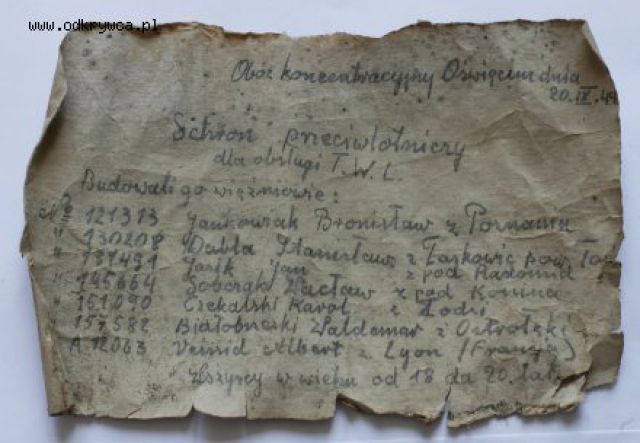 www.odkrywca.pl
Obóz koncentracyjny Oświęcim dnia
20.IX.44
Schron przeciwlotniczy
dla obsługi T.W.L.
Budowali go więźniowie:
No 121313 Jankowiak Bronisław z Poznania
" 130208 Dubla Stanisław z Łaskowic pow.
" 131491 Jasik Jan z pod Radomia
" 145664 Sobczak Wacław z pod Konina
" 151090 Czekalski Karol z Łodzi
" 157582 Białobrzeski Waldemar z Ostrołęki
A.12063 Veissid Albert z Lyon (Francja)
Wszyscy w wieku od 18 do 20. lat